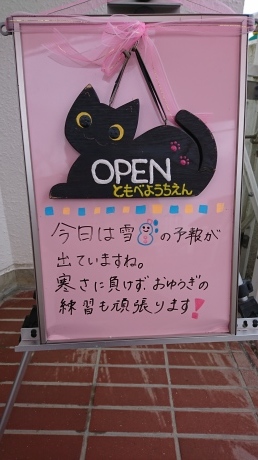 OPEN
ともべようちえん
今日は雪の予報が
出ていますね。
寒さに負けず、おゆうぎの
練習も頑張ります!